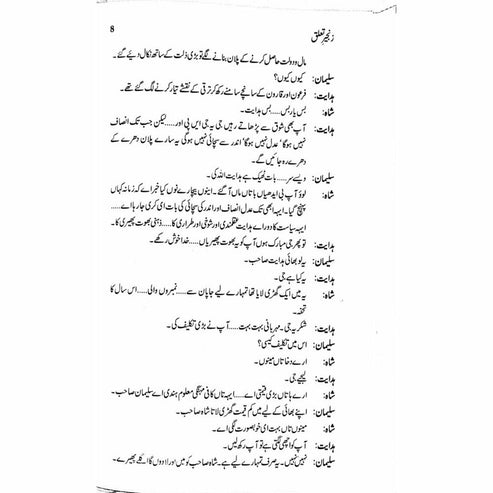 زنجیرِ تعلق 8
مال و دولت حاصل کرنے کے پلان بنانے لگے تو بڑی ذلت کے ساتھ نکال دیئے گئے۔
سلیمان: کیوں کیوں؟
ہدایت: فرعون اور قارون کے سانچے سامنے رکھ کر ترقی کے نقشے تیار کرنے لگ گئے تھے۔
شاہ: بس یار بس..... بس ہدایت۔
ہدایت: آپ بھی شوق سے پڑھاتے رہیں جی یہ جی ایس پی اور..... لیکن جب تک انصاف
نہیں ہو گا‘ عدل نہیں ہو گا‘ اندر سے سچائی نہیں ہو گی یہ سارے پلان دھرے کے
دھرے رہ جائیں گے۔
سلیمان: ویسے سر..... بات ٹھیک ہے ہدایت اللہ کی۔
شاہ: لوؤ آپ بی ایدھیاں باتاں ماں آ گئے۔ اینوں بیچارے نوں کیا خبر اے کہ زمانہ کہاں
پہنچ گیا۔ ایہہ ابھی تک عدل انصاف اور اندر کی سچائی کی بات ای کری جا رہا اے.....
ایہہ سیاست کا دور اے ہدایت عقلمندی اور شوخی اور طراری کا..... ذہنی پھوت پھیری کا۔
ہدایت: تو پھر جی مبارک ہوں آپ کو یہ پھوت پھیریاں..... خدا خوش رکھے۔
سلیمان: یہ لو بھائی ہدایت صاحب۔
ہدایت: یہ کیا ہے جی۔
شاہ: یہ میں ایک گھڑی لایا تھا تمہارے لیے جاپان سے..... نمبروں والی..... اس سال کا
تحفہ۔
ہدایت: شکریہ جی۔ مہربانی بہت بہت..... آپ نے بڑی تکلیف کی۔
سلیمان: اس میں تکلیف کیسی؟
شاہ: ارے دخا تاں مینوں۔
ہدایت: لیجیے جی۔
شاہ: ارے باتاں بڑی قیمتی اے..... ایہہ تاں کافی مہنگی معلوم ہندی اے سلیمان صاحب۔
سلیمان: اپنے بھائی کے لیے میں کم قیمت گھڑی لاتا شاہ صاحب۔
شاہ: مینوں تاں بہت ای خوبصورت لگی اے۔
ہدایت: آپ کو اچھی لگتی ہے تو آپ رکھ لیں۔
سلیمان: نہیں نہیں۔ یہ صرف تمہارے لیے ہے۔ شاہ صاحب کو میں اور لا دوں گا اگلے پھیرے۔